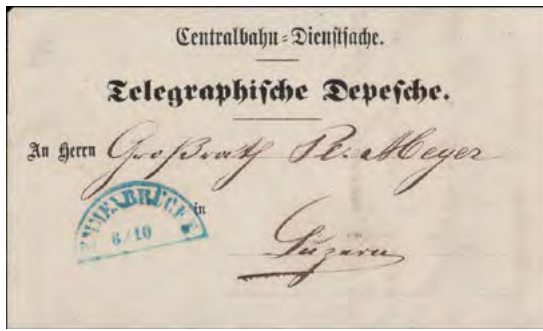 Centralbahn=Dienstsache.
Telegraphische Depesche.
An Herrn Großrath Pl. Meyer
EMMENBRÜCKE
6/10
in
Luzern